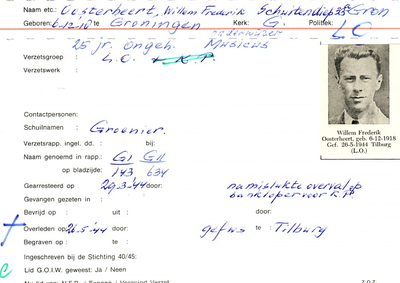 Naam etc.: Oosterheert, Willem Frederik Schuitendiep 35 Gron
Geboren: 6-12-'18 te Groningen Kerk: G. Politiek:
onderwijzer
25 jr. ongeh. Musicus LO
Verzetsgroep : L.O. + K.P.
Verzetswerk :
Contactpersonen:
Schuilnaam : Groenier.
Verzetsrapp. ingel. dd. : bij:
Naam genoemd in rapp.: GI GII
op bladzijde: 143 634
Gearresteerd op : 29-3-'44 door: na mislukte overval op
Gevangen gezeten in : bankloper voor K.P.
Bevrijd op : uit : door:
Overleden op : 26-5-'44 gefus te : Tilburg
Begraven op : te :
Ingeschreven bij de Stichting 40/45:
Lid G.O.I.W. geweest: Ja / Neen
Willem Frederik
Oosterheert, geb. 6-12-1918
Gef. 26-5-1944 Tilburg
(L.O.)